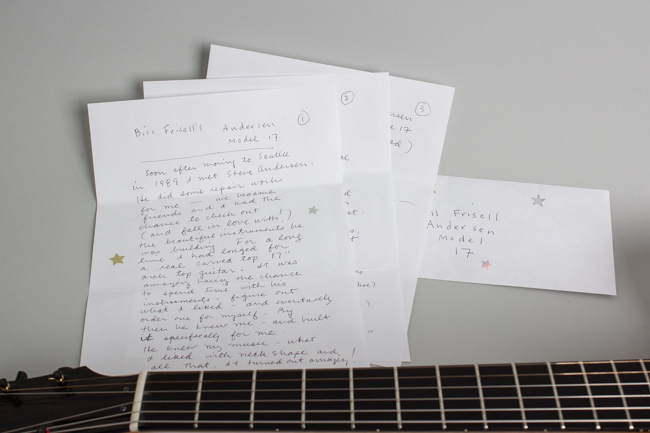 Bill Frisell's Andersen
Model 17
1
Soon after moving to Seattle
in 1989 I met Steve Andersen.
He did some repair work
for me — we became
friends and I had the
chance to check out
(and fall in love with!)
the beautiful instruments he
was building. For a long
time I had longed for
a real carved top 17"
arch top guitar. It was
amazing having the chance
to spend time with his
instruments - figure out
what I liked - and eventually
order one for myself. By
then he knew me - and built
it specifically for me.
He knew my music - what
I liked with neck shape and
all that. It turned out amazing!
2
3
ersen
17
ed)
is Frisell
Andersen
Model
17